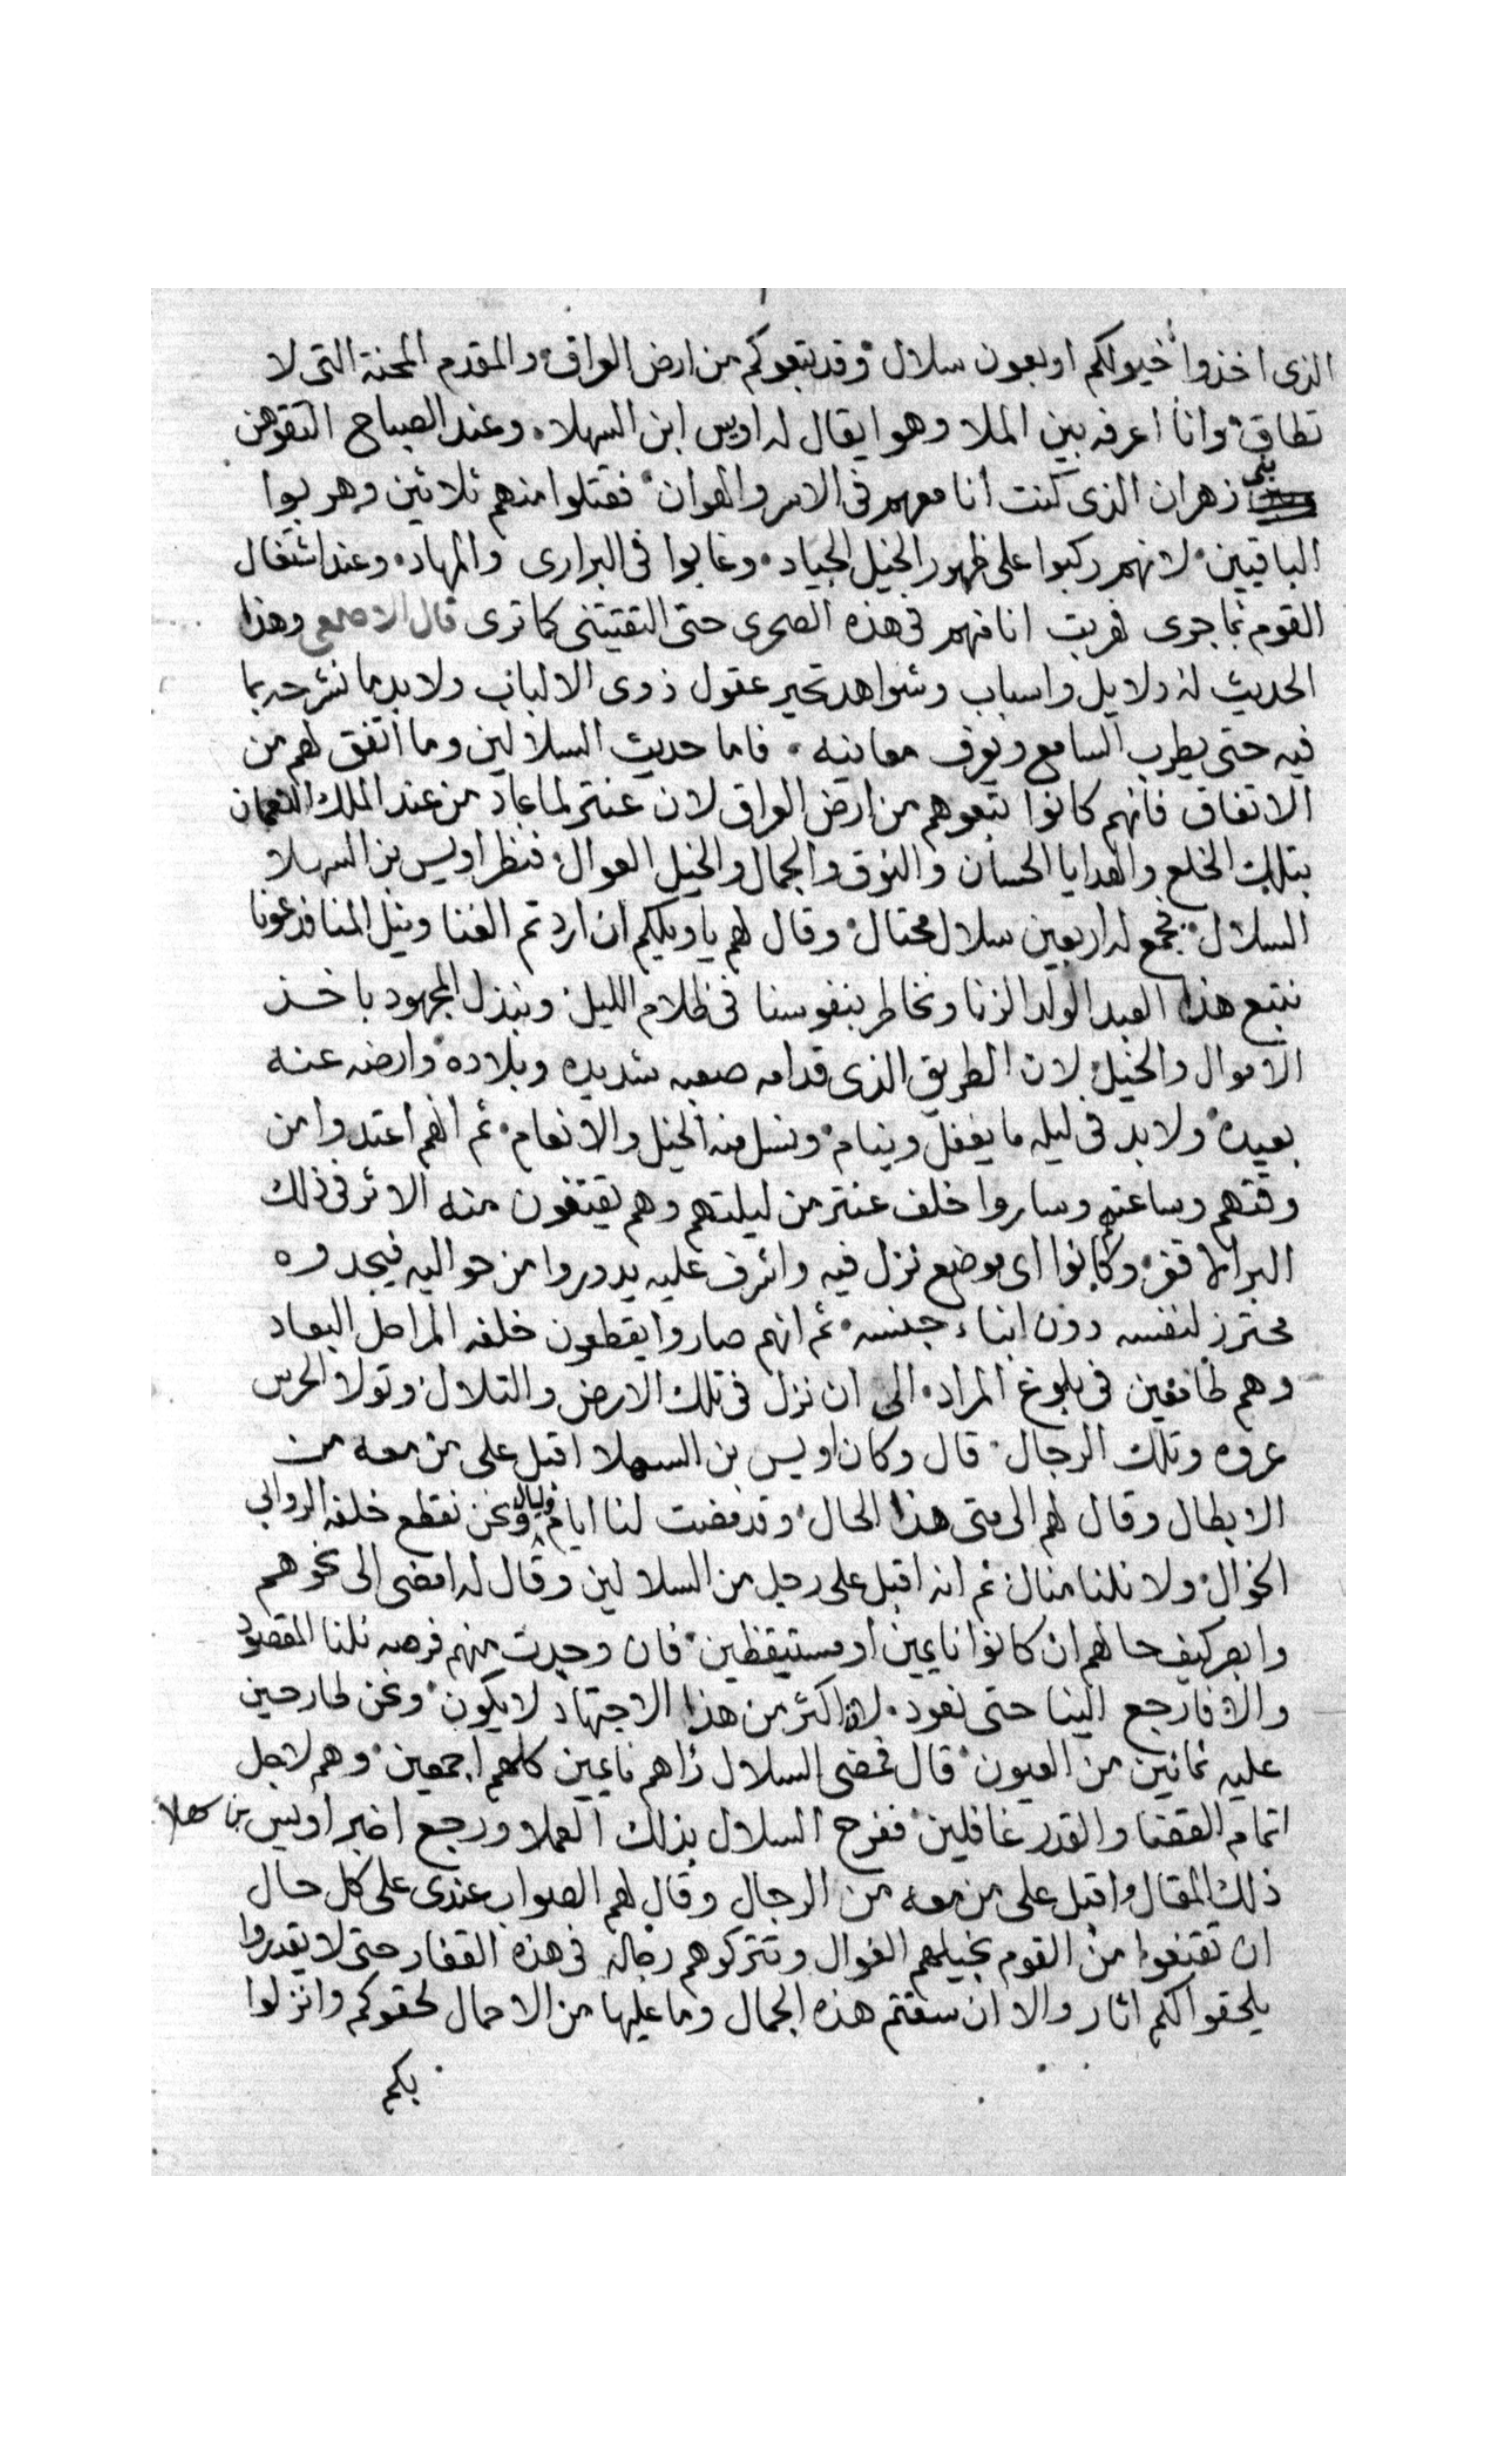 الذى اخذوا خيولكم اربعون سلال وقد تبعوكم من ارض العراق والمقدم المحنة التى لا
تطاق وانا اعرفه بين الملا وهوا يقال له اويس ابن السهلا وعند الصباح التقوهن
بنى زهران الذى كنت انا معهم فى الاسر والهوان فقتلوا منهم ثلاثين وهربوا
الباقيين لانهم ركبوا على ظهور الخيل الجياد وغابوا فى البرارى والمهاد وعند اشتغال
القوم بما جرى هربت انا منهم فى هذه الصحرى حتى التقيتنى كما ترى قال الاصمعى وهذا
الحديث له دلايل واسباب وشواهد تحير عقول ذوى الالباب ولا بد ما نشرحه بما
فيه حتى يطرب السامع ويعرف معانيه فاما حديث السلالين وما اتفق لهم من
الاتفاق فانهم كانوا تبعوهم من ارض العراق لان عنتر لما عاد من عند الملك النعمان
بتلك الخلع والهدايا الحسان والنوق والجمال والخيل العوال فنظر اويس بن السهلا
السلال فجمع له اربعين سلال محتال وقال لهم يا ويلكم ان اردتم الغنا ونيل المنا فدعونا
نتبع هذا العبد الولد الزنا ونخاطر بنفوسنا فى ظلام الليل ونبذل المجهود باخذ
الاموال والخيل لان الطريق الذى قدامه صعبه شديده وبلاده وارضه عنه
بعيده ولا بد فى ليله ما يغفل وينام ونسل منه الخيل والانعام ثم انهم اعتدوا من
وقتهم وساعتهم وساروا خلف عنتر من ليلتهم وهم يقتفون منه الاثر فى ذلك
البر الاقفر وكانوا اى موضع نزل فيه واشرف عليه يدوروا من حواليه فيجدوه
محترز لنفسه دون ابناء جنسه ثم انهم صاروا يقطعون خلفه المراحل البعاد
وهم طامعين فى بلوغ المراد الى ان نزل فى تلك الارض والتلال وتولا الحرس
عروه وتلك الرجال قال وكان اويس بن السهلا اقبل على من معه من
الابطال وقال لهم الى متى هذا الحال وقد مضت لنا ايام وليال ونحن نقطع خلفه الروابى
الخوال ولا نلنا منال ثم انه اقبل على رجل من السلالين وقال له امضى الى نحوهم
وابصر كيف حالهم ان كانوا نايمين او مستيقظين فان وجدت منهم فرصه نلنا المقصود
والا فارجع الينا حتى نعود لان اكثر من هذا الاجتهاد لا يكون ونحن طارحين
عليه ثمانين من العيون قال فمضى السلال راهم نايمين كلهم اجمعين وهم لاجل
اتمام القضا والقدر غافلين ففرح السلال بذلك العملا ورجع اخبر اويس بن سهلا
ذلك المقال واقبل على من معه من الرجال وقال لهم الصواب عندى على كل حال
ان تقنعوا من القوم بخيلهم الغوال وتتركوهم رجاله فى هذه القفار حتى لا يقدروا
يلحقوا لكم اثار والا ان سقتم هذه الجمال وما عليها من الاحمال لحقوكم وانزلوا
بكم